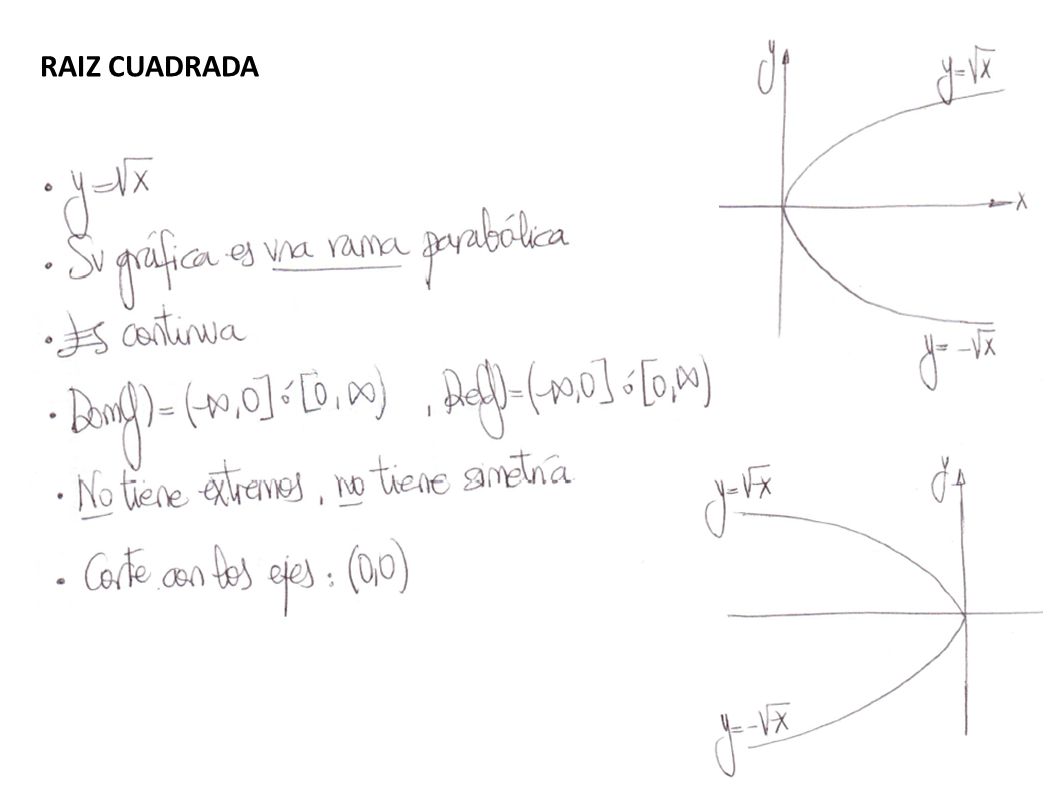 RAIZ CUADRADA
• y=√x
• Su gráfica es una rama parabólica
• Es continua
• Dom(y)=(-∞,0] ó [0,∞) , Rec(y)=(-∞,0] ó [0,∞)
• No tiene extremos, no tiene simetría
• Corte con los ejes: (0,0)
y
y=√x
x
y= -√x
y
y=√-x
y=-√-x